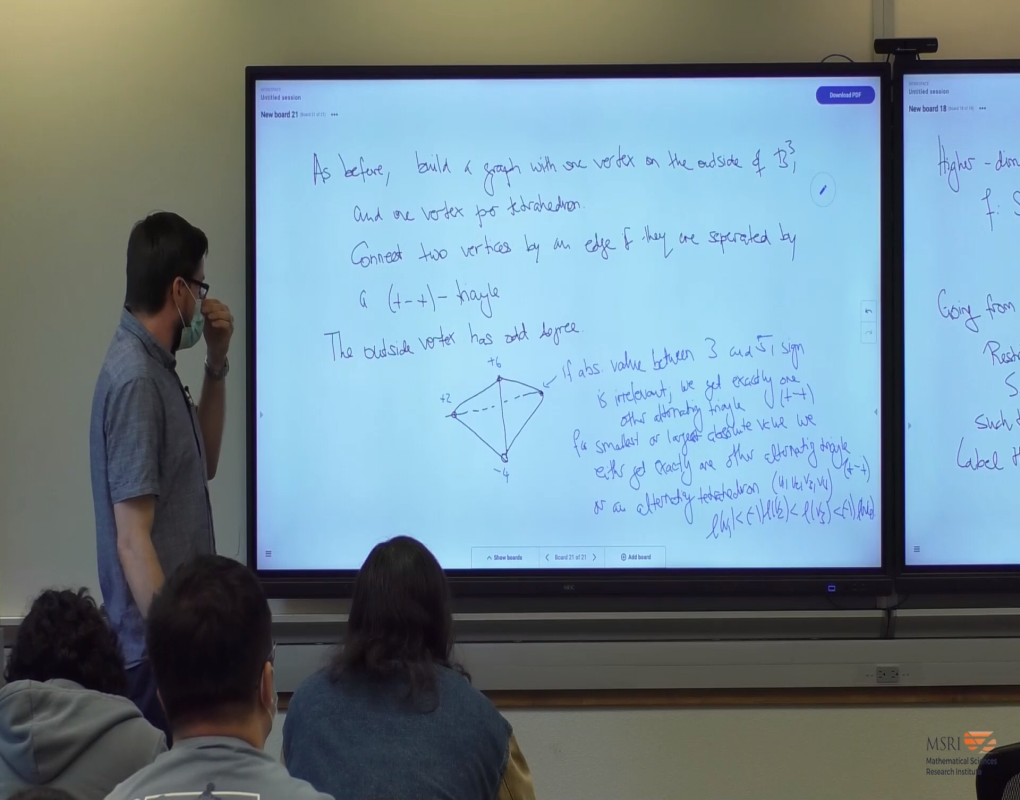 Untitled session
New board 21
Download PDF
As before, build a graph with one vertex on the outside of B³,
and one vertex per tetrahedron.
Connect two vertices by an edge if they are seperated by
a (+-+)- triangle
The outside vertex has odd degree.
+6
+2
-4
if abs. value between 3 and 5, sign
is irrelevant, we get exactly one
other alternating triangle (+-+)
for smallest or largest absolute value we
either get exactly one other alternating triangle (+-+)
or an alternating tetrahedron (v₁, v₂, v₃, v₄)
l(v₁) < (-) l(v₂) < l(v₃) < (-) l(v₄)
Show boards
Board 21 of 21
Add board
Untitled session
New board 18
Higher-dim
f: S
Going from
Such t
Label t
MSRI
Mathematical Sciences
Research Institute